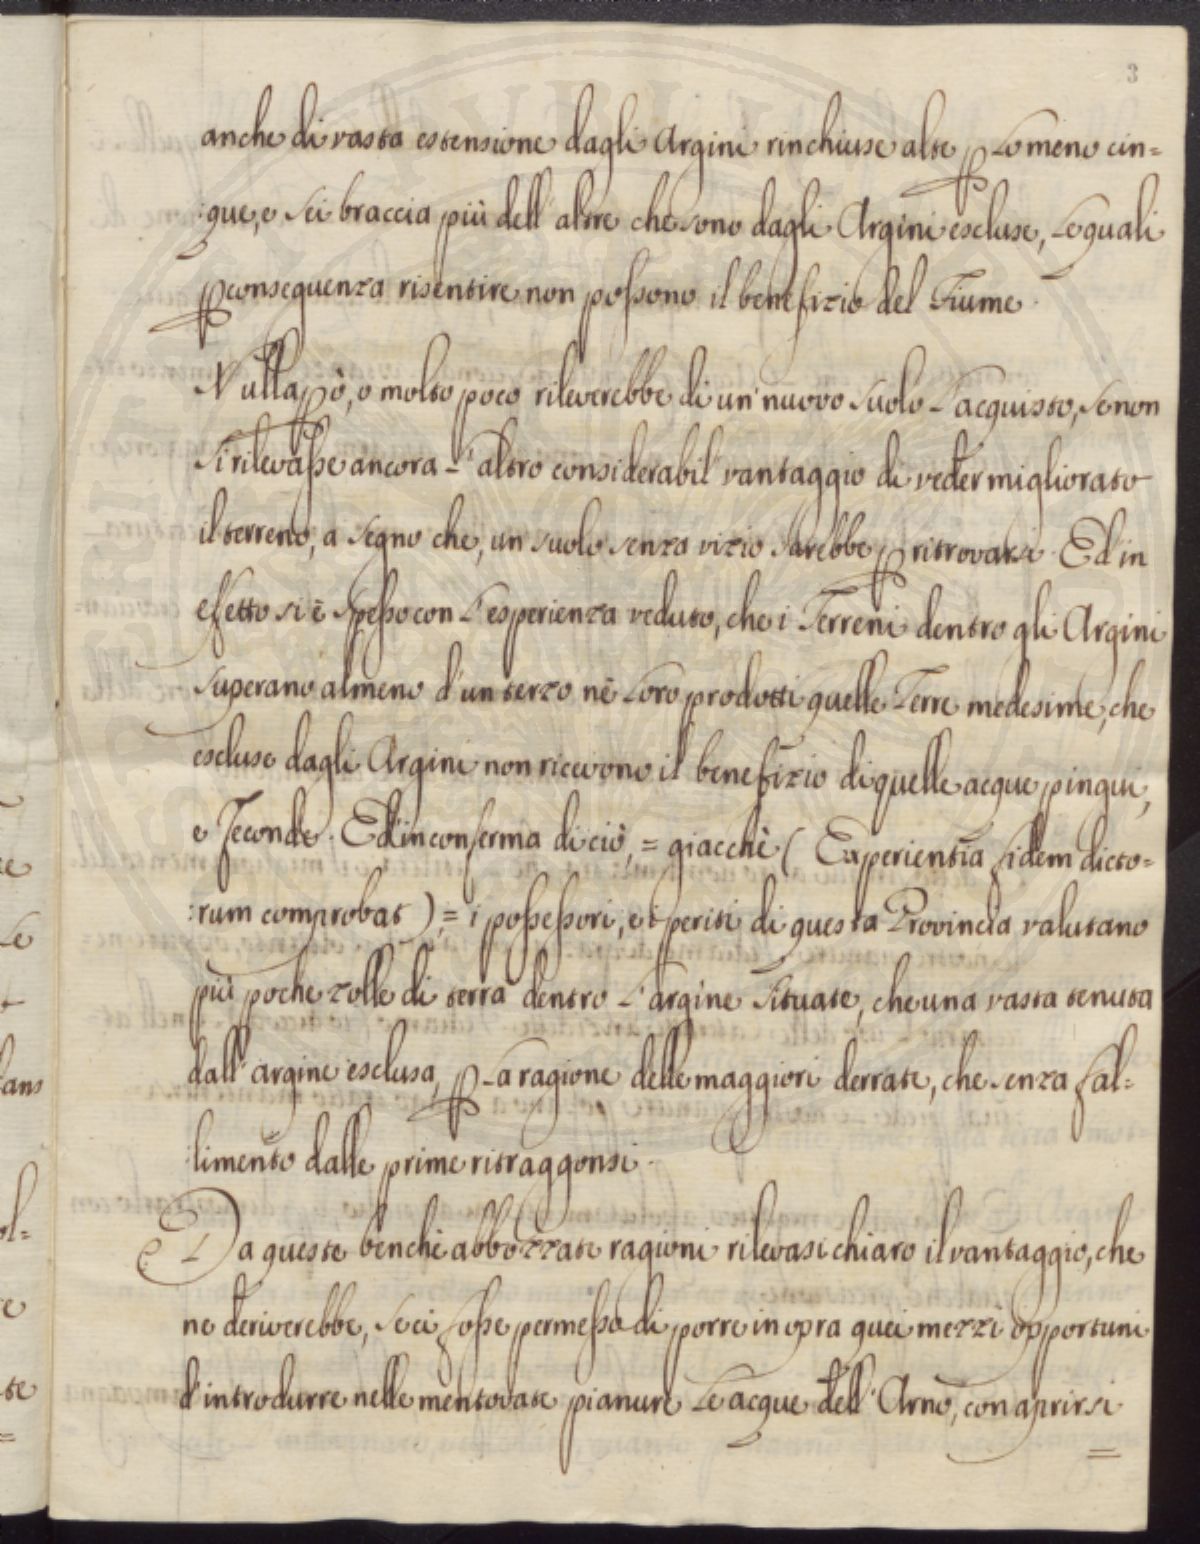 3
anche di vasta estensione dagli Argini rinchiuse alte p lo meno cin=
:que, e sei braccia più dell' altre che sono dagli Argini escluse, le quali
p consequenza risentire non possono il benefizio del Fiume.
Nulla pò, o molto poco rileverebbe di un' nuovo suolo l'acquisto, se non
si rilevasse ancora l'altro considerabil' vantaggio di veder migliorato
il terreno, a segno che, un suolo senza vizio sarebbe p ritrovarsi. Ed in
efetto si è spesso con l'esperienza veduto, che i Terreni dentro gli Argini
superano almeno d'un terzo nè loro prodotti quelle Terre medesime, che
escluse dagli Argini non ricevono il benefizio di quelle acque pingui,
e feconde. Ed in conferma di ciò, = giacchè ( Experientia fidem dicto=
:rum comprobat ), = i possessori, e i periti di questa Provincia valutano
più poche zolle di terra dentro l'argine situate, che una vasta tenuta
dall' argine esclusa, p la ragione delle maggiori derrate, che senza fal=
:limento dalle prime ritraggonsi.
E Da queste benchè abbozzate ragioni rilevasi chiaro il vantaggio, che
ne deriverebbe, se ci fosse permesso di porre in opra quei mezzi opportuni
d'introdurre nelle mentovate pianure le acque dell' Arno, con aprirsi
=